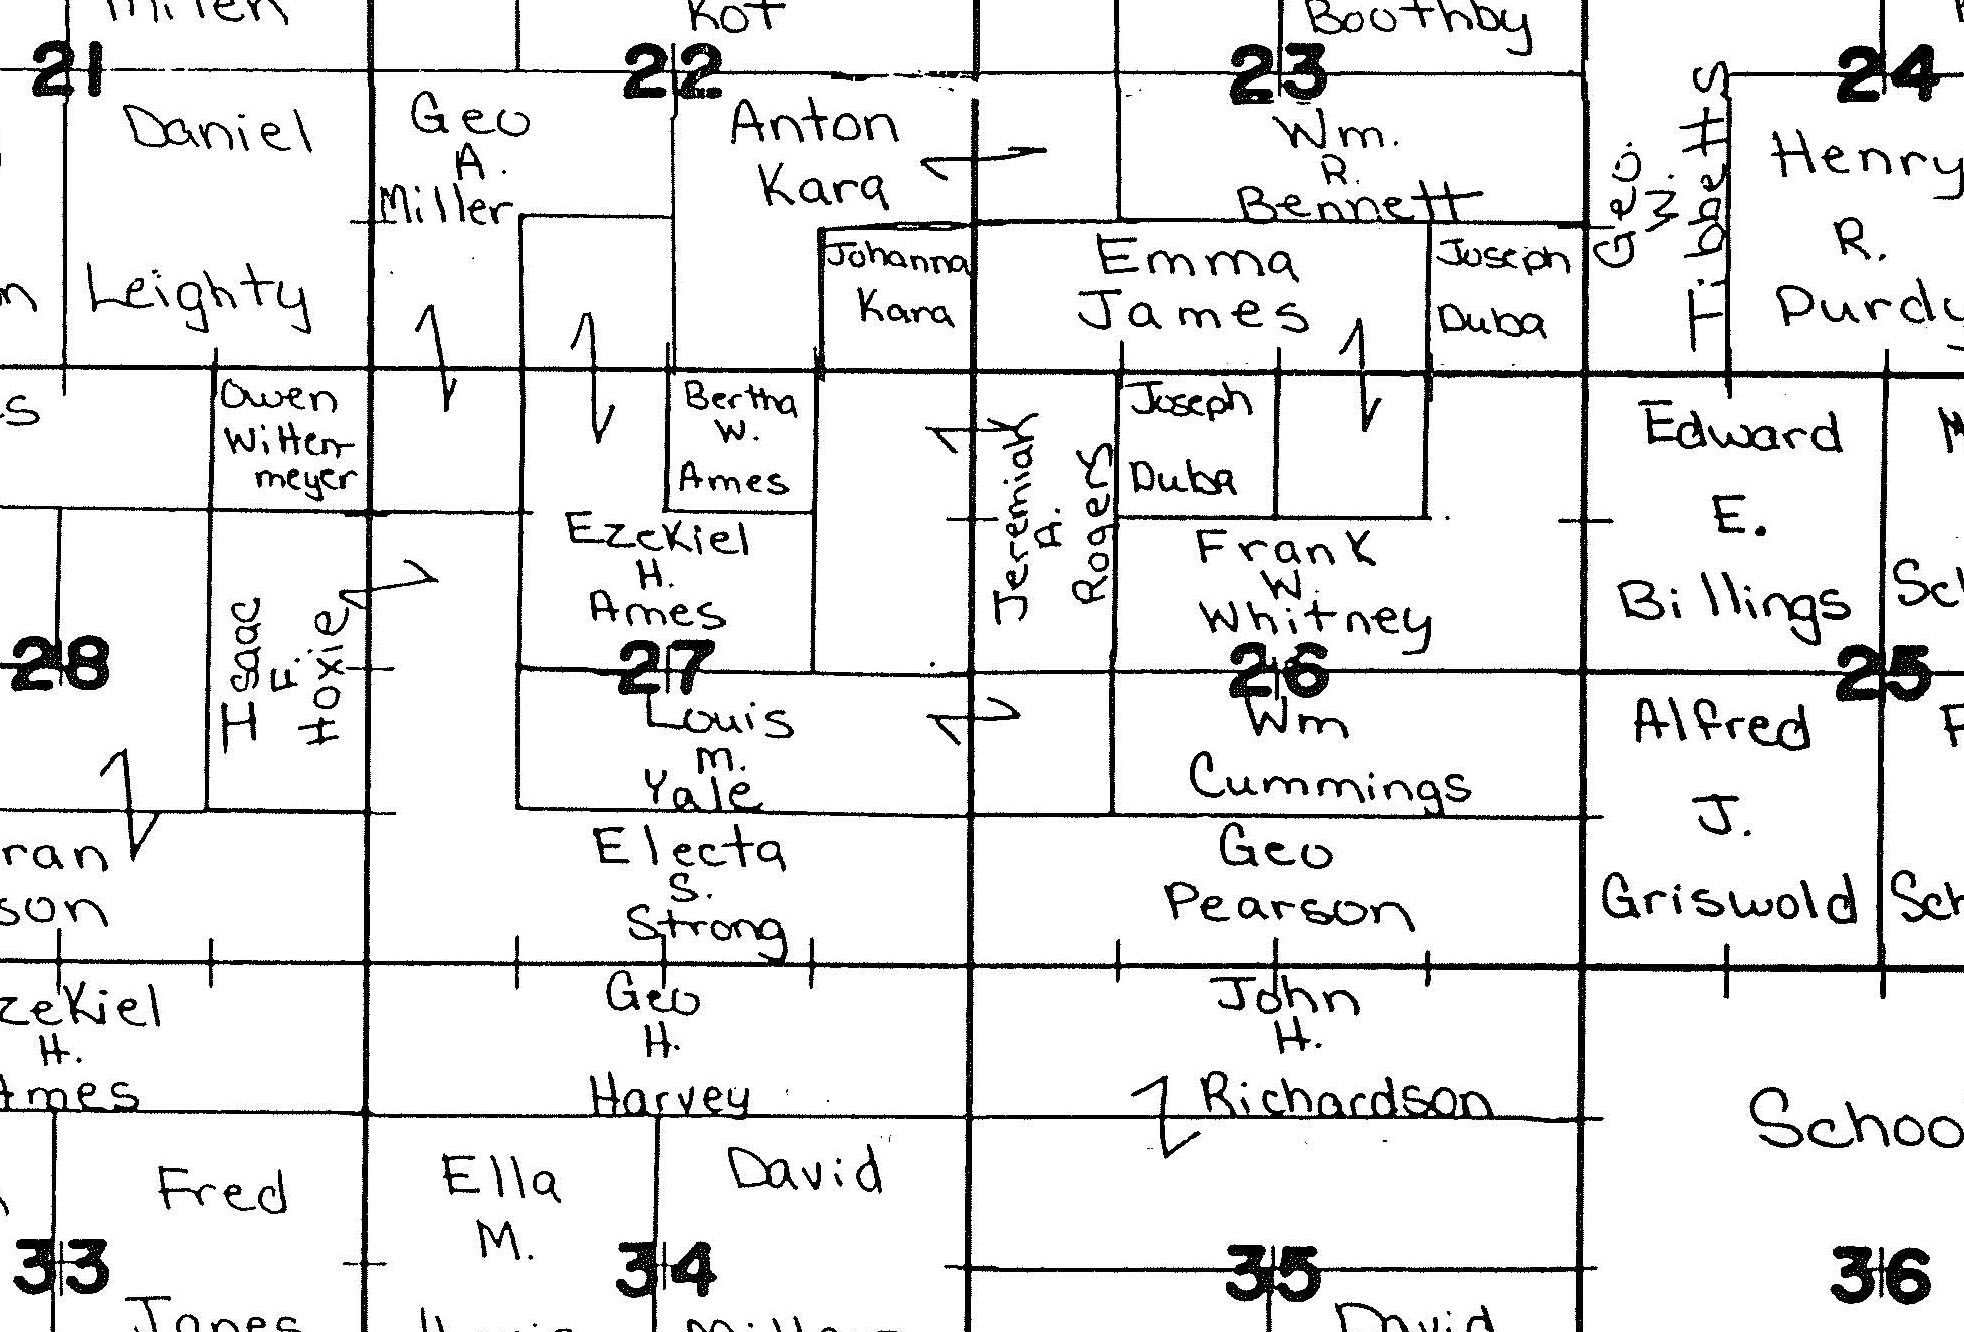 Kot
Boothby
21
22
23
24
Daniel
Leighty
Geo
A.
Miller
Anton
Kara
Wm.
R.
Bennett
Geo.
W.
Tibbetts
Henry
R.
Purdy
Johanna
Kara
Emma
James
Joseph
Duba
Owen
Witten-
meyer
Bertha
W.
Ames
Jeremiah
A.
Rogers
Joseph
Duba
Edward
E.
Billings
Ezekiel
H.
Ames
Frank
W.
Whitney
Isaac
F.
Hoxie
28
27
26
25
Louis
M.
Yale
Wm
Cummings
Alfred
J.
Griswold
ran
son
Electa
S.
Strong
Geo
Pearson
Sch
zekiel
H.
Ames
Geo
H.
Harvey
John
H.
Richardson
Schoo
Fred
Ella
M.
David
33
34
35
36
Jones
David